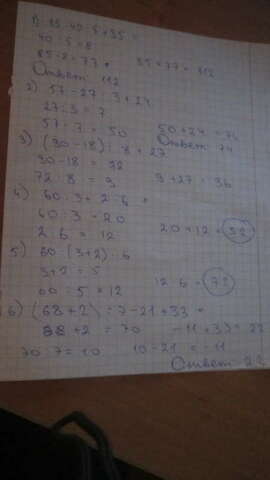 1) 85-40:5+35=
40:5=8
85-8=77 35+77=112
Ответ 112
2) 57-27:3+24
27:3=7
57-7=50 50+24=74
Ответ 74
3) (90-18):8+27
90-18=72
72:8=9 9+27=36
4) 60:3+2·6=
60:3=20
2·6=12 20+12=32
5) 60:(3+2)·6
3+2=5
60:5=12 12·6=72
6) (68+2):7-21+33=
68+2=70 -11+33=22
70:7=10 10-21=-11
Ответ 22